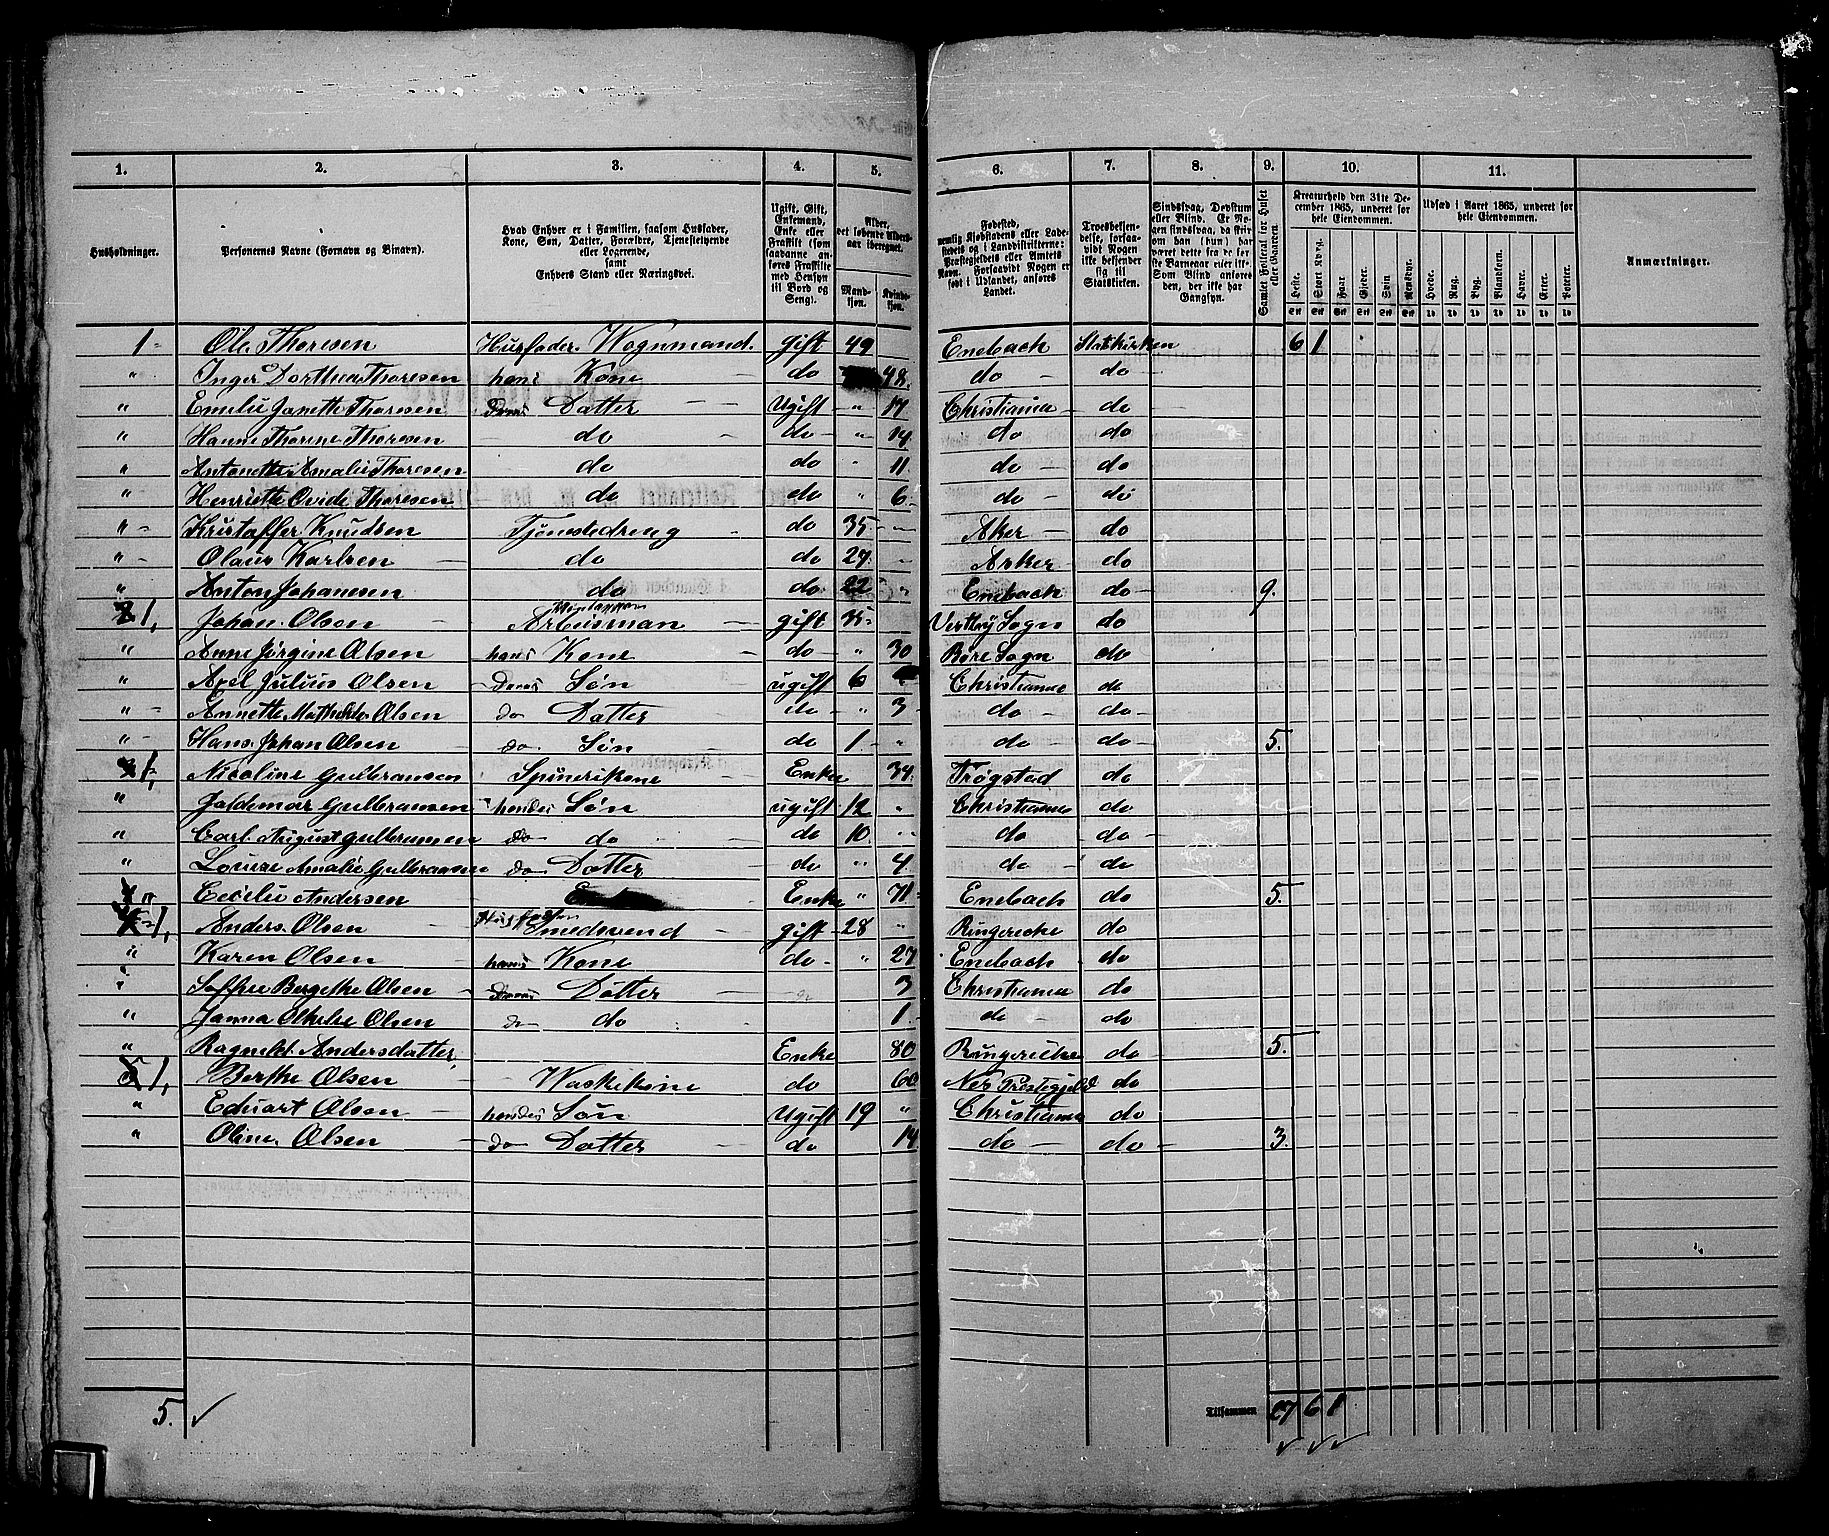 1. 2. 3. 4. 5. 6. 7. 8. 9. 10. 11.
Husholdninger.
Personernes Navne (Fornavn og Binavn).
Hvad Enhver er i Familien, saasom Husfader, Kone, Søn, Datter, Forældre, Tjenestetyende eller Logerende, samt Enhvers Stand eller Næringsvei.
Ugift, Gift, Enkemand, Enke eller Fraskilt (som saadanne anføres Fraskilte med Hensyn til Bord og Seng).
Alder, det løbende Alders-aar iberegnet.
Mand-kjøn. Kvinde-kjøn.
Fødested, nemlig Kjøbstadens eller Ladestedets og i Landdistrikterne: Præstegjeldets eller Amtets Navn. Forsaavidt Nogen er født i Udlandet, anføres Landet.
Troesbekjendelse, forsaavidt Nogen ikke bekjender sig til Statskirken.
Sindssvag, Døvstum eller Blind.
Samlet Folketal for Huset eller Gaarden.
Kreaturhold den 31te December 1865, underet for hele Eiendommen.
Heste. Stort Kvæg. Faar. Gjeder. Svin. Rensdyr.
Udsæd i Aaret 1865, underet for hele Eiendommen.
Hvede. Rug. Byg. Blandkorn. Havre. Erter. Poteter.
Anmærkninger.
1 Ole Thoresen Husfader Wognmand. gift 49 Enebach Statskirken 6 1
" Inger Dorthea Thoresen hans Kone do 48. do do
" Emelie Janette Thoresen Deres Datter Ugift " 17 Christiania do
" Hanne Thorine Thoresen do do " 14 do do
" Antonette Amalie Thoresen do do " 11 do do
" Henriette Ovide Thoresen do do " 6 do do
" Kristoffer Knudsen Tjenestedreng do 35 Aker do
" Olaus Karlsen do do 27 Asker do
" Anton Johanesen do do 22 " Enebach do 9.
1, Johan Olsen Arbeisman gift 35 Vestby Sogn do
" Anne Jørgine Olsen hans Kone do " 30 Sogn do
" Axel Julius Olsen Deres Søn ugift 6 Christiania do
" Annette Mathilde Olsen do Datter do " 3 do do
" Hans Johan Olsen do Søn do 1 " do do 5.
1, Nicoline Gulbransen Spinerikone Enke 34. Trøgstad do
" Valdemar Gulbransen hendes Søn ugift 12 " Christiania do
" Carl August Gulbransen do do do 10 " do do
" Louise Amalie Gulbransen do Datter do " 4. do do
" Cecilie Andersen Enke " 71 Enebach do 5.
1, Anders Olsen Smedsvend gift 28 " Ringerike do
" Karen Olsen hans Kone do " 27 Enebach do
" Bergethe Olsen Deres Datter 3 Christiania do
" Janna Olsen do do 1 do do
" Ragnild Andersdatter Enke 80 Ringerike do 5.
1, Berthe Olsen Waskekone do 60 Nes Prestegjeld do
" Eduart Olsen hendes Søn Ugift 19 " Christiania do
" Oline Olsen do Datter do 14 do do 3.
5.
Tilsammen 27 6 1